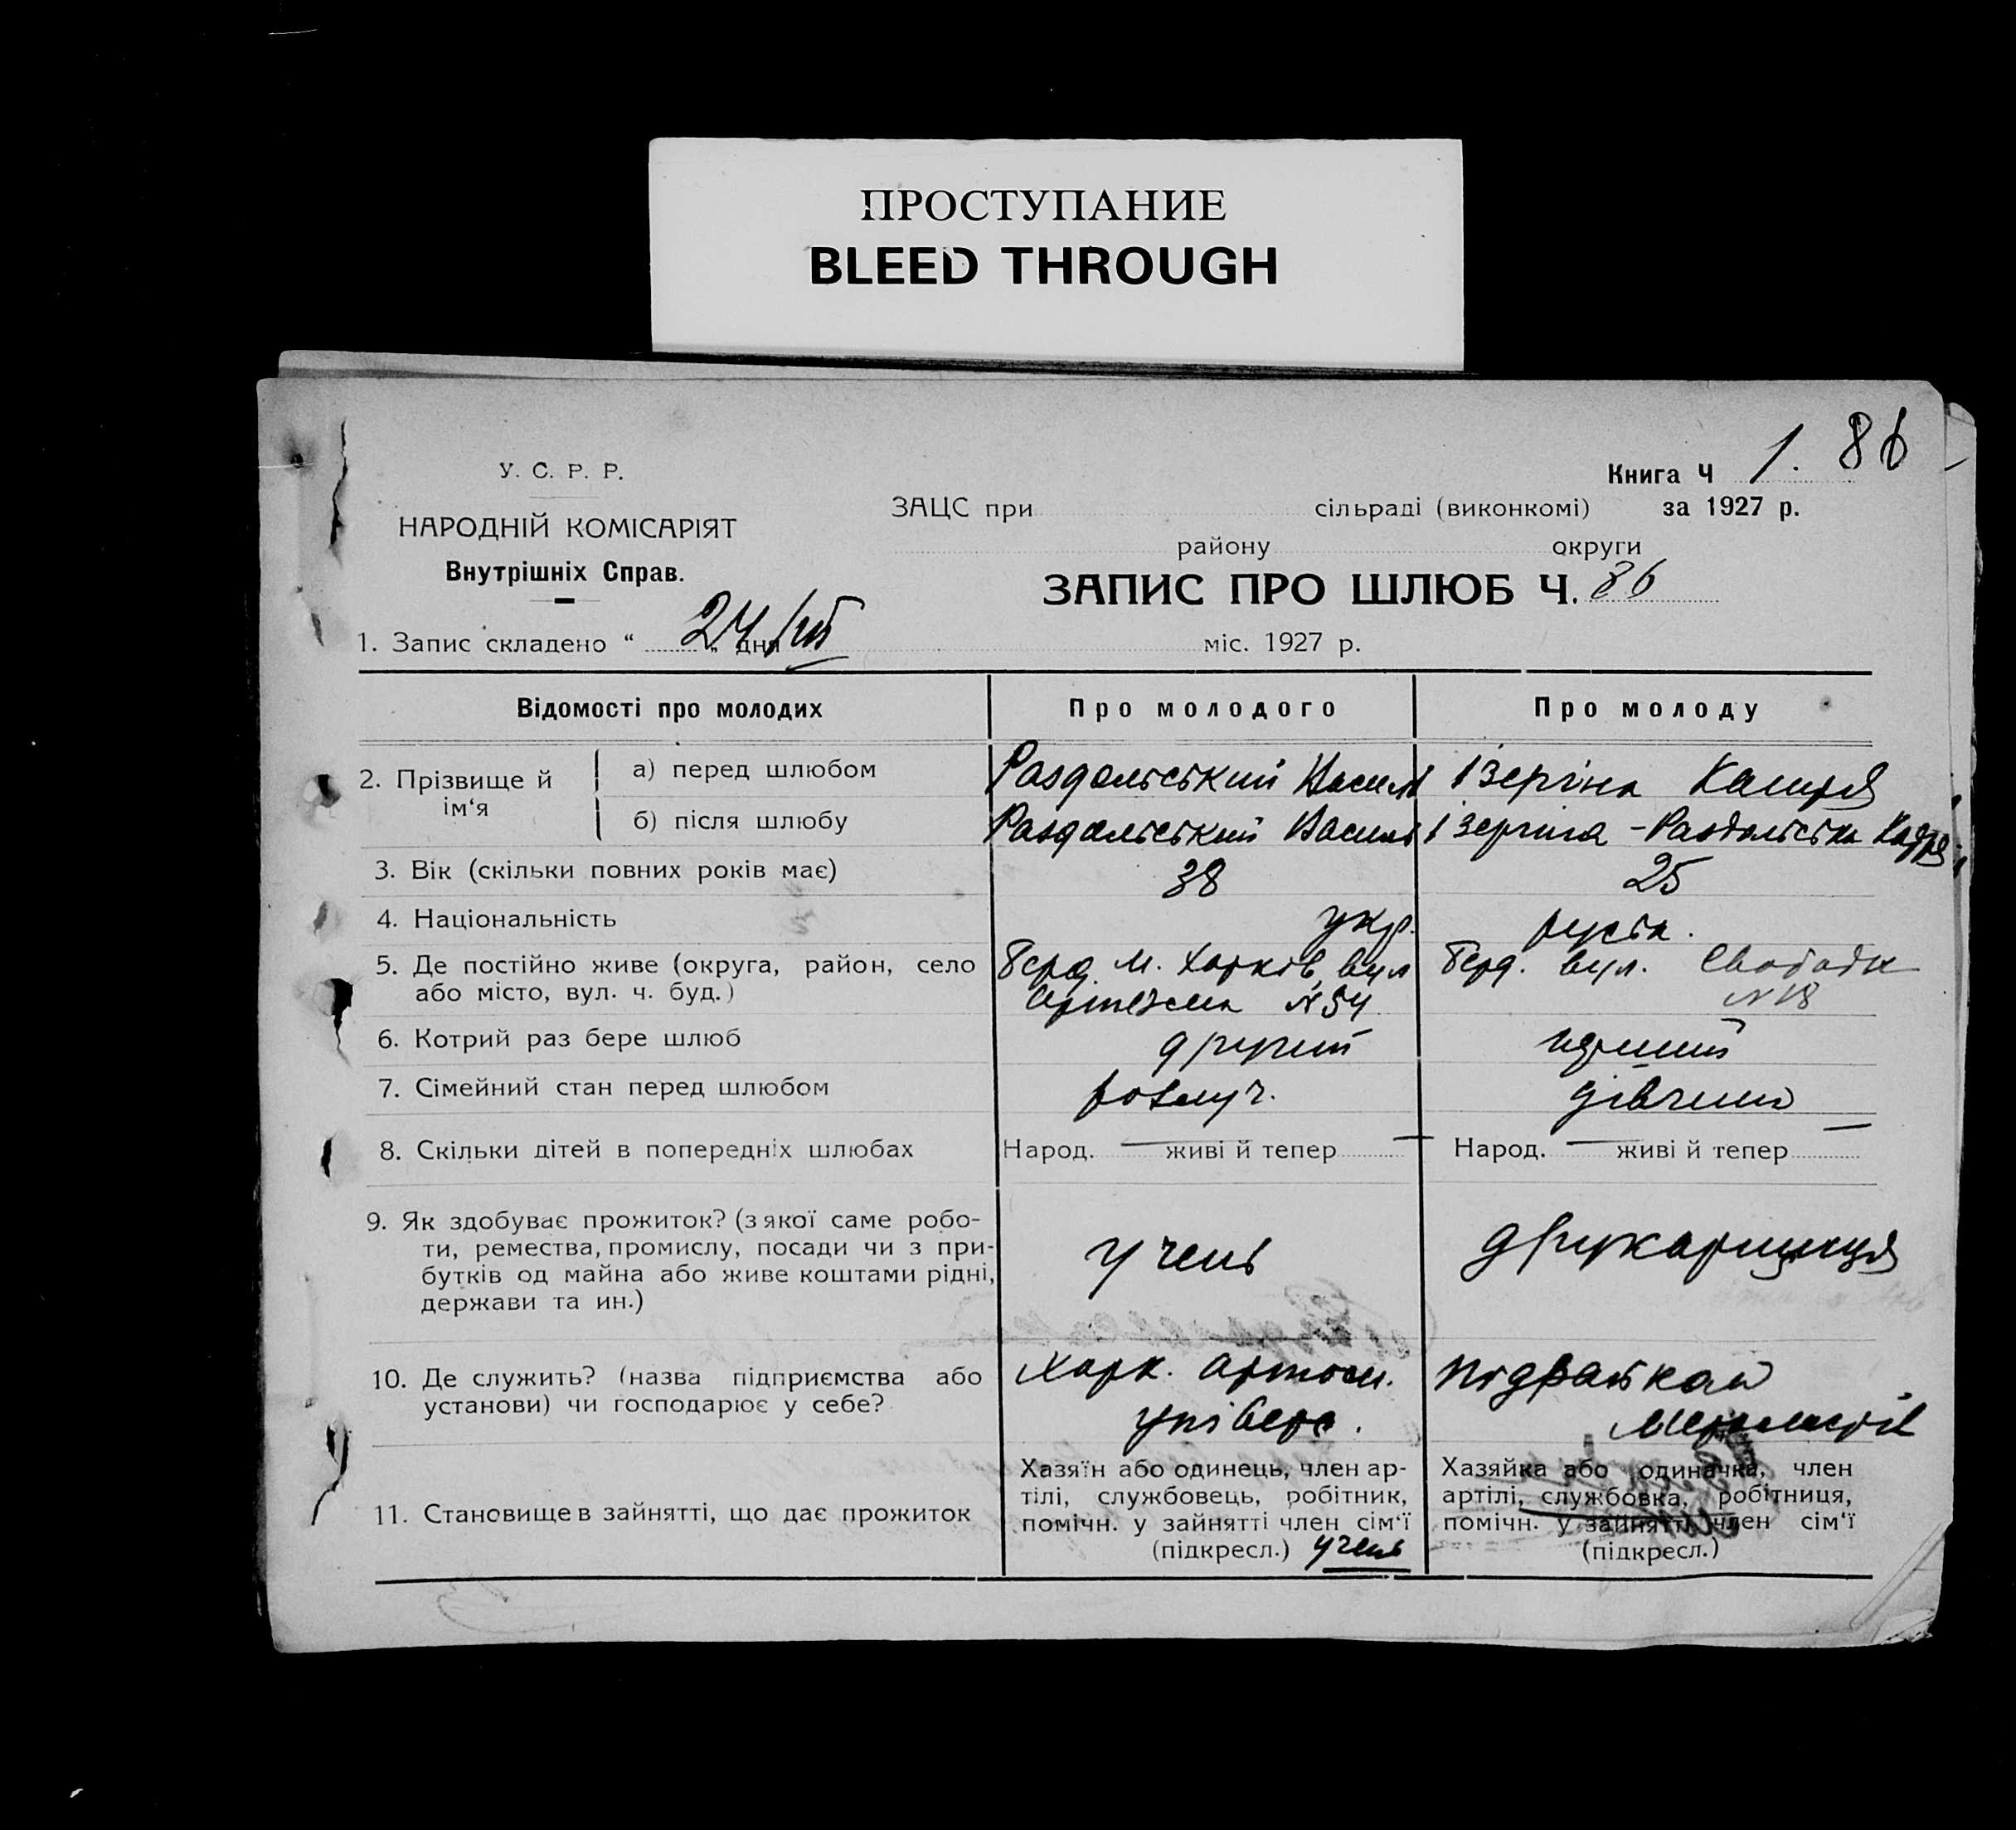 ПРОСТУПАНИЕ
BLEED THROUGH
Книга Ч 1. 86
У. С. Р. Р.
ЗАЦС при сільраді (виконкомі) за 1927 р.
НАРОДНІЙ КОМІСАРІЯТ
району округи
Внутрішніх Справ.
ЗАПИС ПРО ШЛЮБ Ч. 86
1. Запис складено “ 24 „ дня міс. 1927 р.
Відомості про молодих Про молодого Про молоду
2. Прізвище й ім‘я
а) перед шлюбом Раздольський Василь Ізергіна
б) після шлюбу Раздольський Василь Ізергіна - Раздольська
3. Вік (скільки повних років має) 38 25
4. Національність укр. руська.
5. Де постійно живе (округа, район, село Берд. м. Харків, вул Берд. вул. Свободи
або місто, вул. ч. буд.) Артема N 54 N 18
6. Котрий раз бере шлюб другий перший
7. Сімейний стан перед шлюбом розлуч. дівчина
8. Скільки дітей в попередніх шлюбах Народ. — живі й тепер — Народ. — живі й тепер —
9. Як здобуває прожиток? (з якої саме робо-
ти, ремества, промислу, посади чи з при-
бутків од майна або живе коштами рідні,
держави та ин.)
учень друкарщиця
10. Де служить? (назва підприємства або Харк. артом.
установи) чи господарює у себе? універс.
11. Становище в зайнятті, що дає прожиток
Хазяїн або одинець, член ар-
тілі, службовець, робітник,
помічн. у зайнятті член сім‘ї
(підкресл.) учень
Хазяйка або одиначка, член
артілі, службовка, робітниця,
помічн. у зайнятті член сім‘ї
(підкресл.)